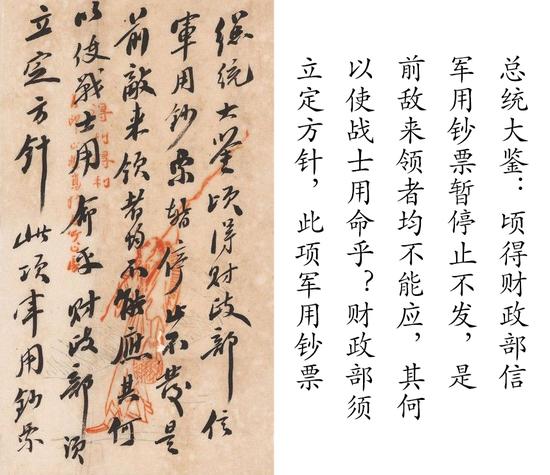 總統大鑒頃得财政部信
軍用鈔票暫停止不發是
前敵来領者均不能應其何
以使戰士用命乎财政部须
立定方針此項軍用鈔票
总统大鉴：顷得财政部信
军用钞票暂停止不发，是
前敌来领者均不能应，其何
以使战士用命乎？财政部须
立定方针，此项军用钞票